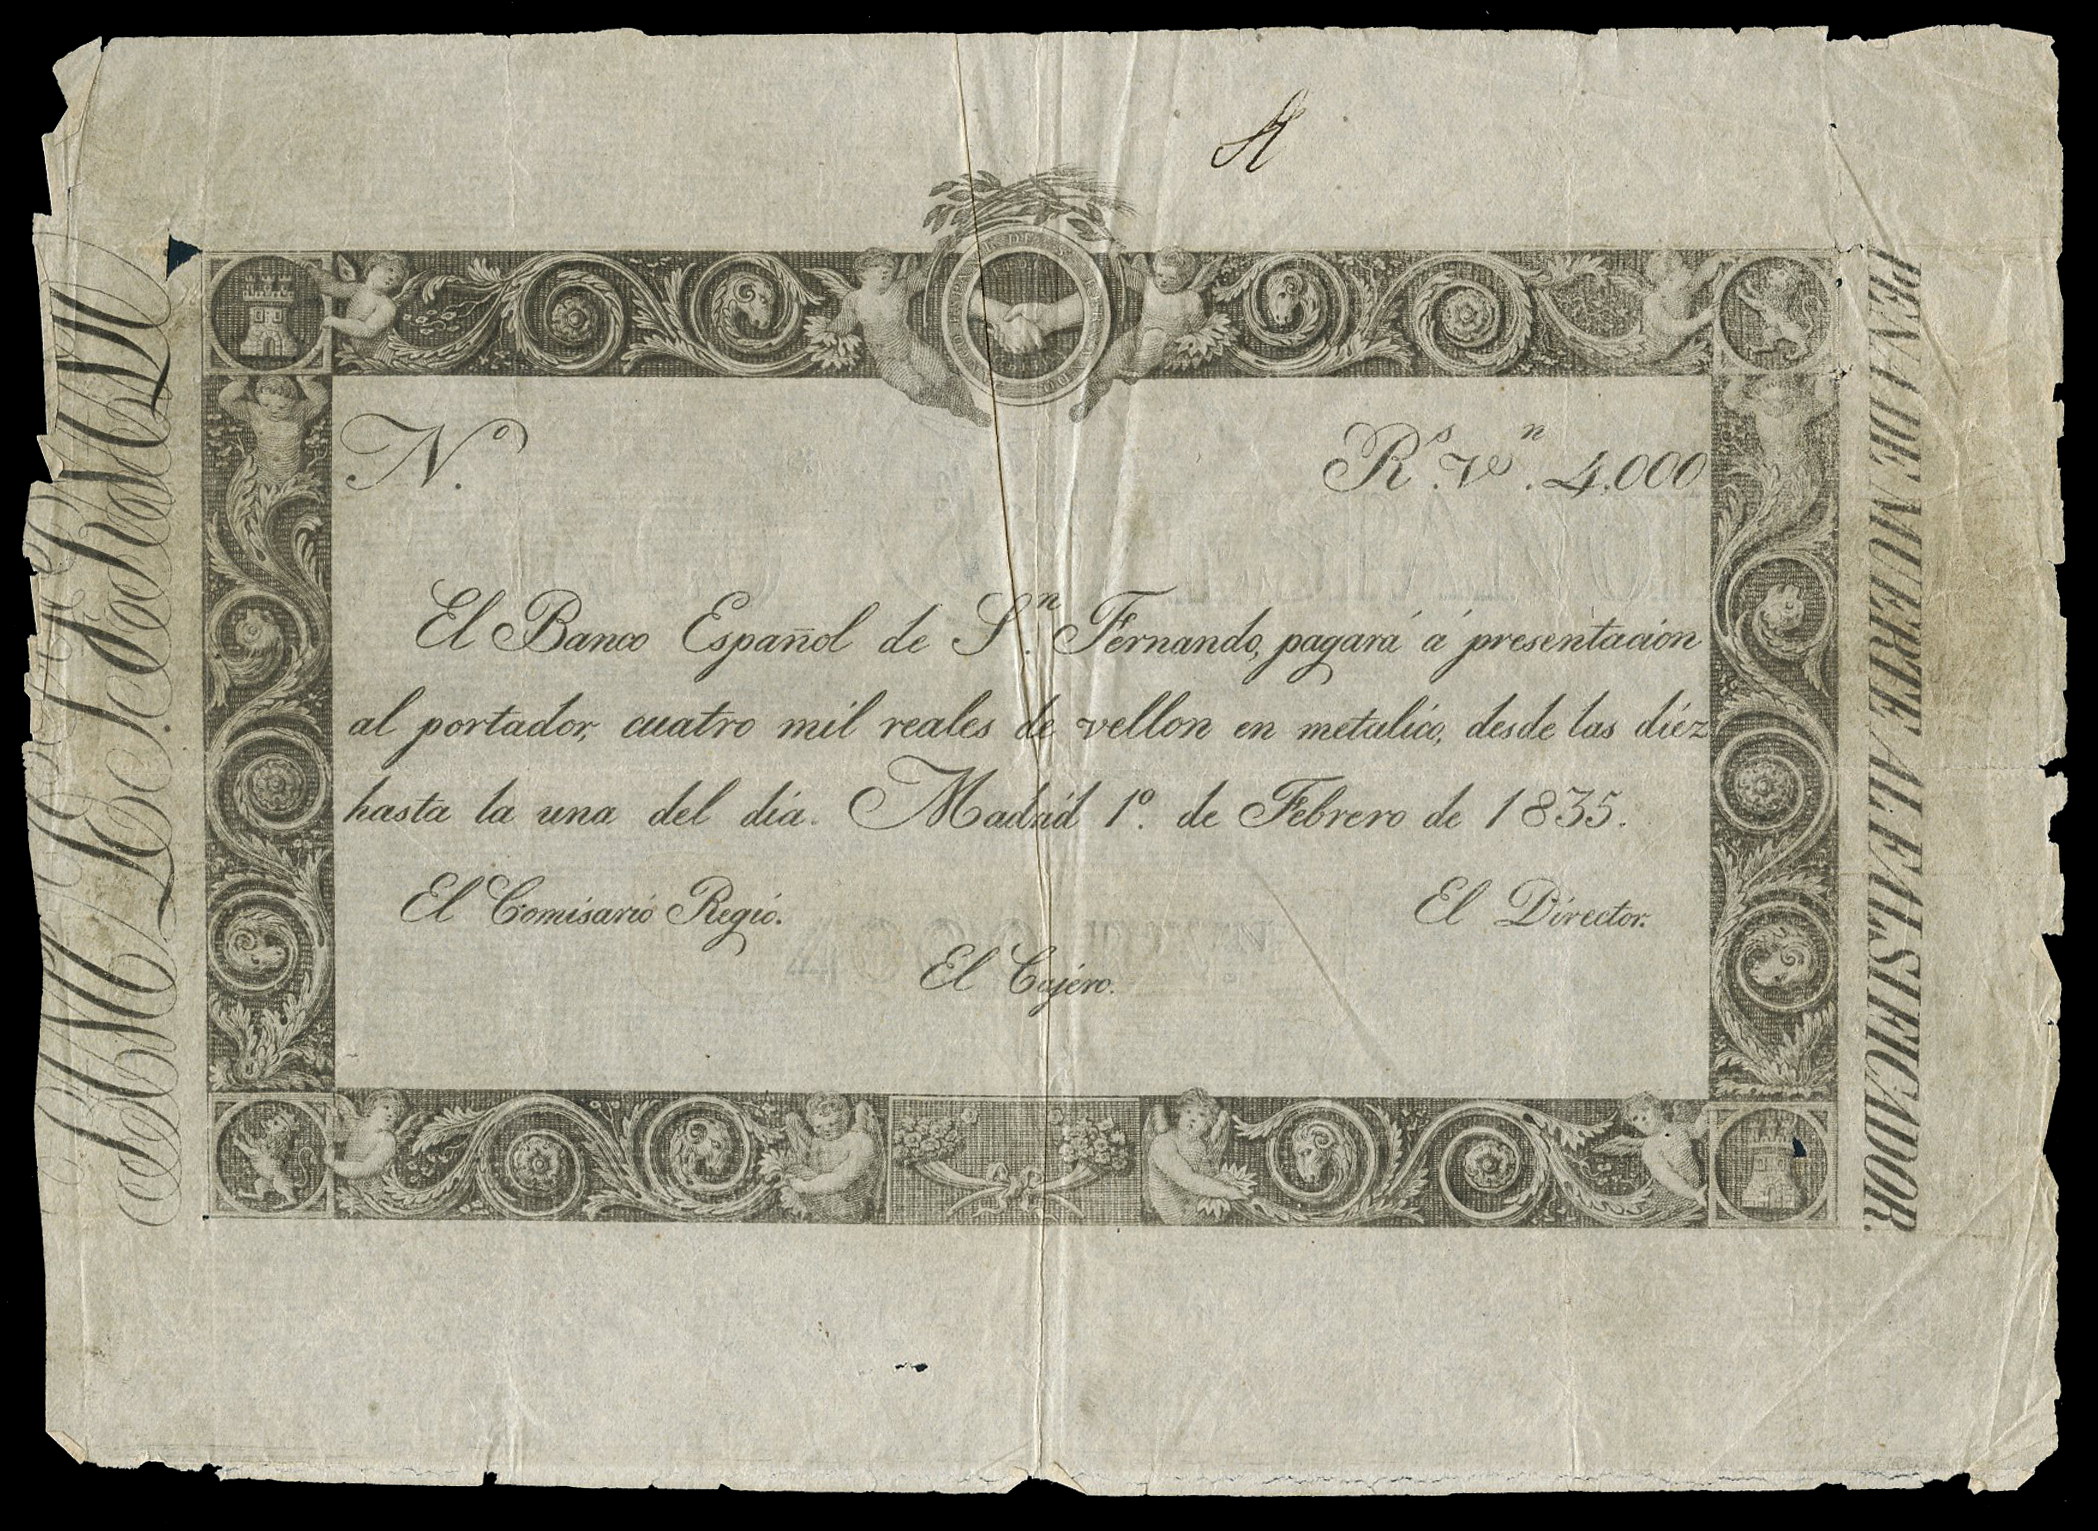 Nº.
Rˢ. Vⁿ. 4,000
El Banco Español de Sⁿ. Fernando, pagará á presentacion
al portador, cuatro mil reales de vellon en metalico, desde las diez
hasta la una del dia. Madrid 1º. de Febrero de 1835.
El Comisario Regio.
El Director.
El Cajero.
PENA DE MUERTE AL FALSIFICADOR.